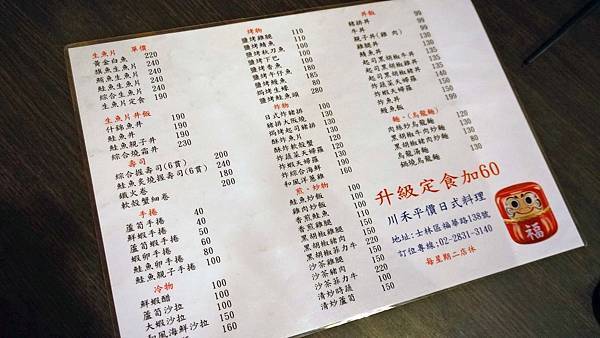 生魚片 單價
黃金白魚 220
旗魚生魚片 240
鮪魚生魚片 240
鮭魚生魚片 240
綜合生魚片 240
生魚片定食 190
生魚片丼飯
什錦魚丼 190
鮭魚丼 190
鮭魚親子丼 190
綜合燒霜丼 230
壽司
綜合握壽司(6貫) 240
鮭魚炙燒握壽司(6貫) 240
鐵火卷 180
軟殼蟹細卷 200
手捲
蘆筍手捲 40
鮮蝦手捲 50
蘆筍手捲 60
蝦卵手捲 80
鮭魚卵手捲
鮭魚親子手捲 100
冷物
鮮蝦醋 100
蘆筍沙拉 100
大蝦沙拉 150
和風海鮮沙拉 160
烤物
鹽烤雞腿 110
鹽烤鯖魚 110
鹽烤秋刀魚 100
鹽烤下巴
鹽烤香魚
鹽烤午仔魚 185
鹽烤鰻魚
焗烤生蠔 80
鹽烤鮭魚頭 280
炸物
日式炸豬排
豬排大阪燒
焗烤起司豬排
炸魚片
酥炸軟殼蟹
炸蔬菜天婦羅
炸蝦天婦羅
炸綜合海鮮
和風洋蔥雞
煎‧炒物
鮭魚炒飯 100
雞肉炒飯
香煎鮭魚
香煎雞腿
黑胡椒豬肉
黑胡椒菲力牛
沙茶雞腿
沙茶豬肉
沙茶菲力牛 220
清炒時蔬 100
清炒蘆筍 150
丼飯
豬排丼 99
牛丼 99
親子丼(雞肉)
鮭魚丼
起司黑胡椒牛丼
起司黑胡椒雞丼
起司黑胡椒豬丼
炸蔬菜天婦羅丼
炸蝦天婦羅丼
炸魚丼
鰻魚飯
麵‧(烏龍麵)
肉絲炒烏龍麵
黑胡椒牛肉炒麵
黑胡椒豬肉炒麵
烏龍湯麵 80
鍋燒烏龍麵 130
升級定食加60
川禾平價日式料理
地址:士林區福華路138號
訂位專線:02-2831-3140
每星期二店休
福